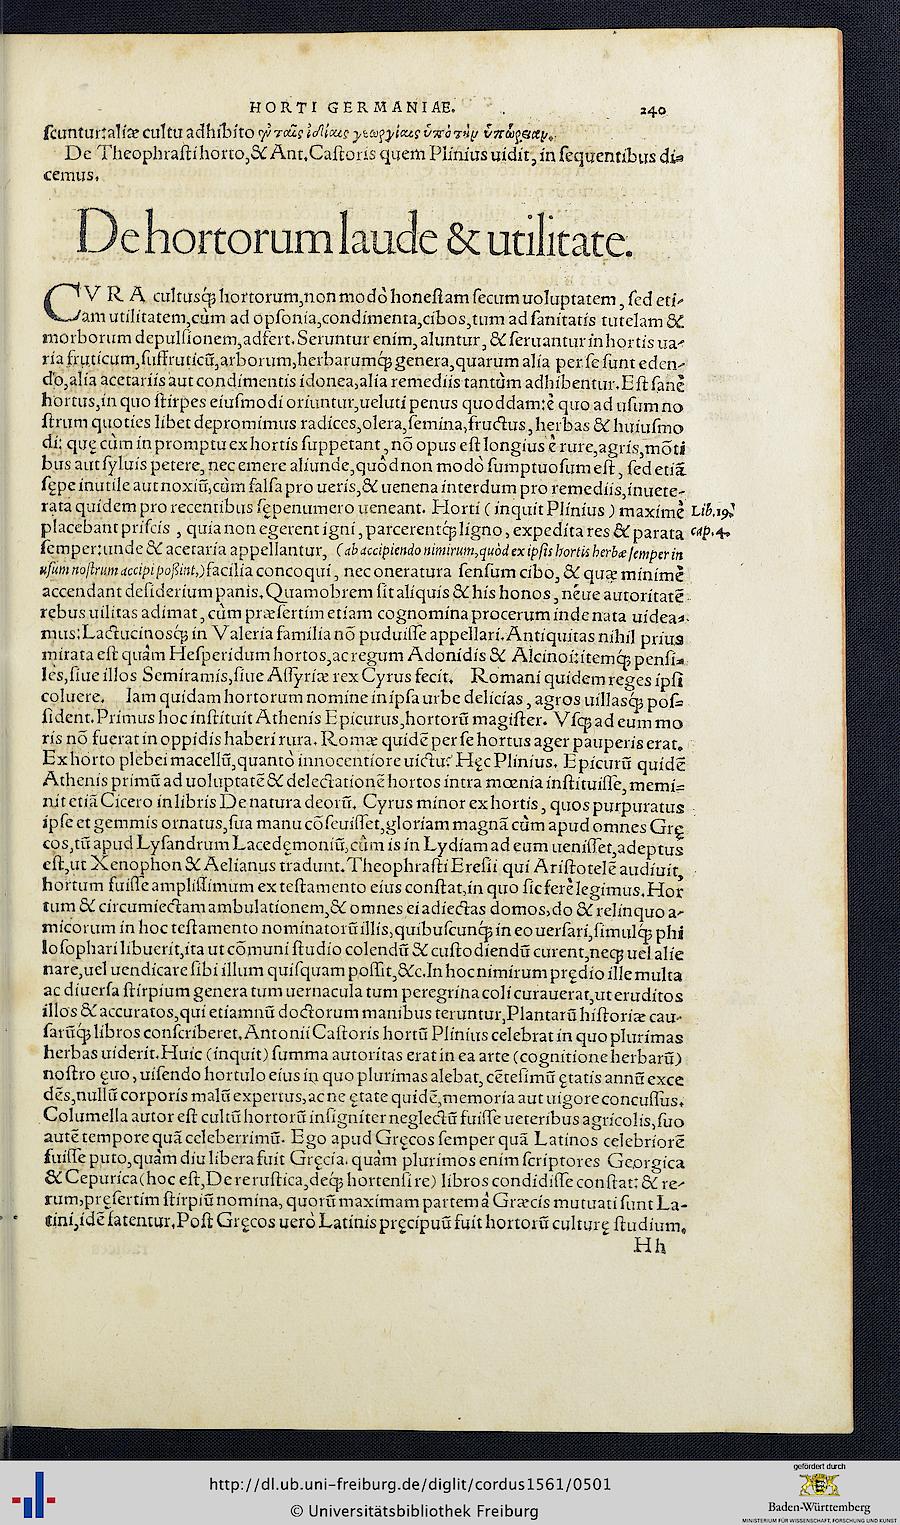 HORTI GERMANIAE. 240
scuntur: aliæ cultu adhibito ἐν ταῖς ἰδίαις γεωργίαις ὑπὸ τὴν ὑπώρειαν.
De Theophrasti horto, & Ant. Castoris quem Plinius uidit, in sequentibus di=
cemus.
De hortorum laude & utilitate.
CVRA cultusq́; hortorum, non modò honestam secum uoluptatem, sed eti-
am utilitatem, cùm ad opsonia, condimenta, cibos, tum ad sanitatis tutelam &
morborum depulsionem, adfert. Seruntur enim, aluntur, & seruantur in hortis ua-
ria fruticum, suffruticū, arborum, herbarumq́; genera, quarum alia per se sunt eden-
do, alia acetariis aut condimentis idonea, alia remediis tantùm adhibentur. Est sanè
hortus, in quo stirpes eiusmodi oriuntur, ueluti penus quoddam: è quo ad usum no
strum quoties libet depromimus radices, olera, semina, fructus, herbas & huiusmo
di: quę cùm in promptu ex hortis suppetant, nō opus est longius è rure, agris, mōti
bus aut syluis petere, nec emere aliunde, quòd non modò sumptuosum est, sed etiā
sępe inutile aut noxiū, cùm falsa pro ueris, & uenena interdum pro remediis, inuete-
rata quidem pro recentibus sępenumero ueneant. Horti (inquit Plinius) maximè
Lib. 19.
placebant priscis, quia non egerent igni, parcerentq́; ligno, expedita res & parata
cap. 4.
semper: unde & acetaria appellantur, (ab accipiendo nimirum, quòd ex ipsis hortis herbæ semper in
usum nostrum accipi poßint,) facilia concoqui, nec oneratura sensum cibo, & quæ minimè
accendant desiderium panis. Quamobrem sit aliquis & his honos, néue autoritatē
rebus uilitas adimat, cùm præsertim etiam cognomina procerum inde nata uidea=
mus: Lactucinosq́; in Valeria familia nō puduisse appellari. Antiquitas nihil prius
mirata est quàm Hesperidum hortos, ac regum Adonidis & Alcinoi: itemq́; pensi=
les, siue illos Semiramis, siue Assyriæ rex Cyrus fecit. Romani quidem reges ipsi
coluere. Iam quidam hortorum nomine in ipsa urbe delicias, agros uillasq́; pos=
sident. Primus hoc instituit Athenis Epicurus, hortorū magister. Vsq́; ad eum mo
ris nō fuerat in oppidis haberi rura. Romæ quidē per se hortus ager pauperis erat.
Ex horto plebei macellū, quantò innocentiore uictu: Hęc Plinius. Epicurū quidē
Athenis primū ad uoluptatē & delectationē hortos intra mœnia instituisse, memi=
nit etiā Cicero in libris De natura deorū. Cyrus minor ex hortis, quos purpuratus
ipse et gemmis ornatus, sua manu cōseuisset, gloriam magnā cùm apud omnes Grę
cos, tū apud Lysandrum Lacedęmoniū, cùm is in Lydiam ad eum uenisset, adeptus
est, ut Xenophon & Aelianus tradunt. Theophrasti Eresii qui Aristotelē audiuit,
hortum fuisse amplissimum ex testamento eius constat, in quo sic ferè legimus. Hor
tum & circumiectam ambulationem, & omnes ei adiectas domos, do & relinquo a-
micorum in hoc testamento nominatorū illis, quibuscunq́; in eo uersari, simulq́; phi
losophari libuerit, ita ut cōmuni studio colendū & custodiendū curent, neq́; uel alie
nare, uel uendicare sibi illum quisquam possit, &c. In hoc nimirum prędio ille multa
ac diuersa stirpium genera tum uernacula tum peregrina coli curauerat, ut eruditos
illos & accuratos, qui etiamnū doctorum manibus teruntur, Plantarū historiæ cau-
sarūq́; libros conscriberet. Antonii Castoris hortū Plinius celebrat in quo plurimas
herbas uiderit. Huic (inquit) summa autoritas erat in ea arte (cognitione herbarū)
nostro ęuo, uisendo hortulo eius in quo plurimas alebat, cētesimū ętatis annū exce
dēs, nullū corporis malū expertus, ac ne ętate quidē, memoria aut uigore concussus.
Columella autor est cultū hortorū insigniter neglectū fuisse ueteribus agricolis, suo
autē tempore quā celeberrimū. Ego apud Gręcos semper quā Latinos celebriorē
fuisse puto, quàm diu libera fuit Gręcia. quàm plurimos enim scriptores Georgica
& Cepurica (hoc est, De re rustica, deq́; hortensi re) libros condidisse constat: & re-
rum, pręsertim stirpiū nomina, quorū maximam partem á Græcis mutuati sunt La-
tini, idē fatentur. Post Gręcos uerò Latinis pręcipuū fuit hortorū culturę studium.
Hh
http://dl.ub.uni-freiburg.de/diglit/cordus1561/0501
© Universitätsbibliothek Freiburg
gefördert durch
Baden-Württemberg
MINISTERIUM FÜR WISSENSCHAFT, FORSCHUNG UND KUNST